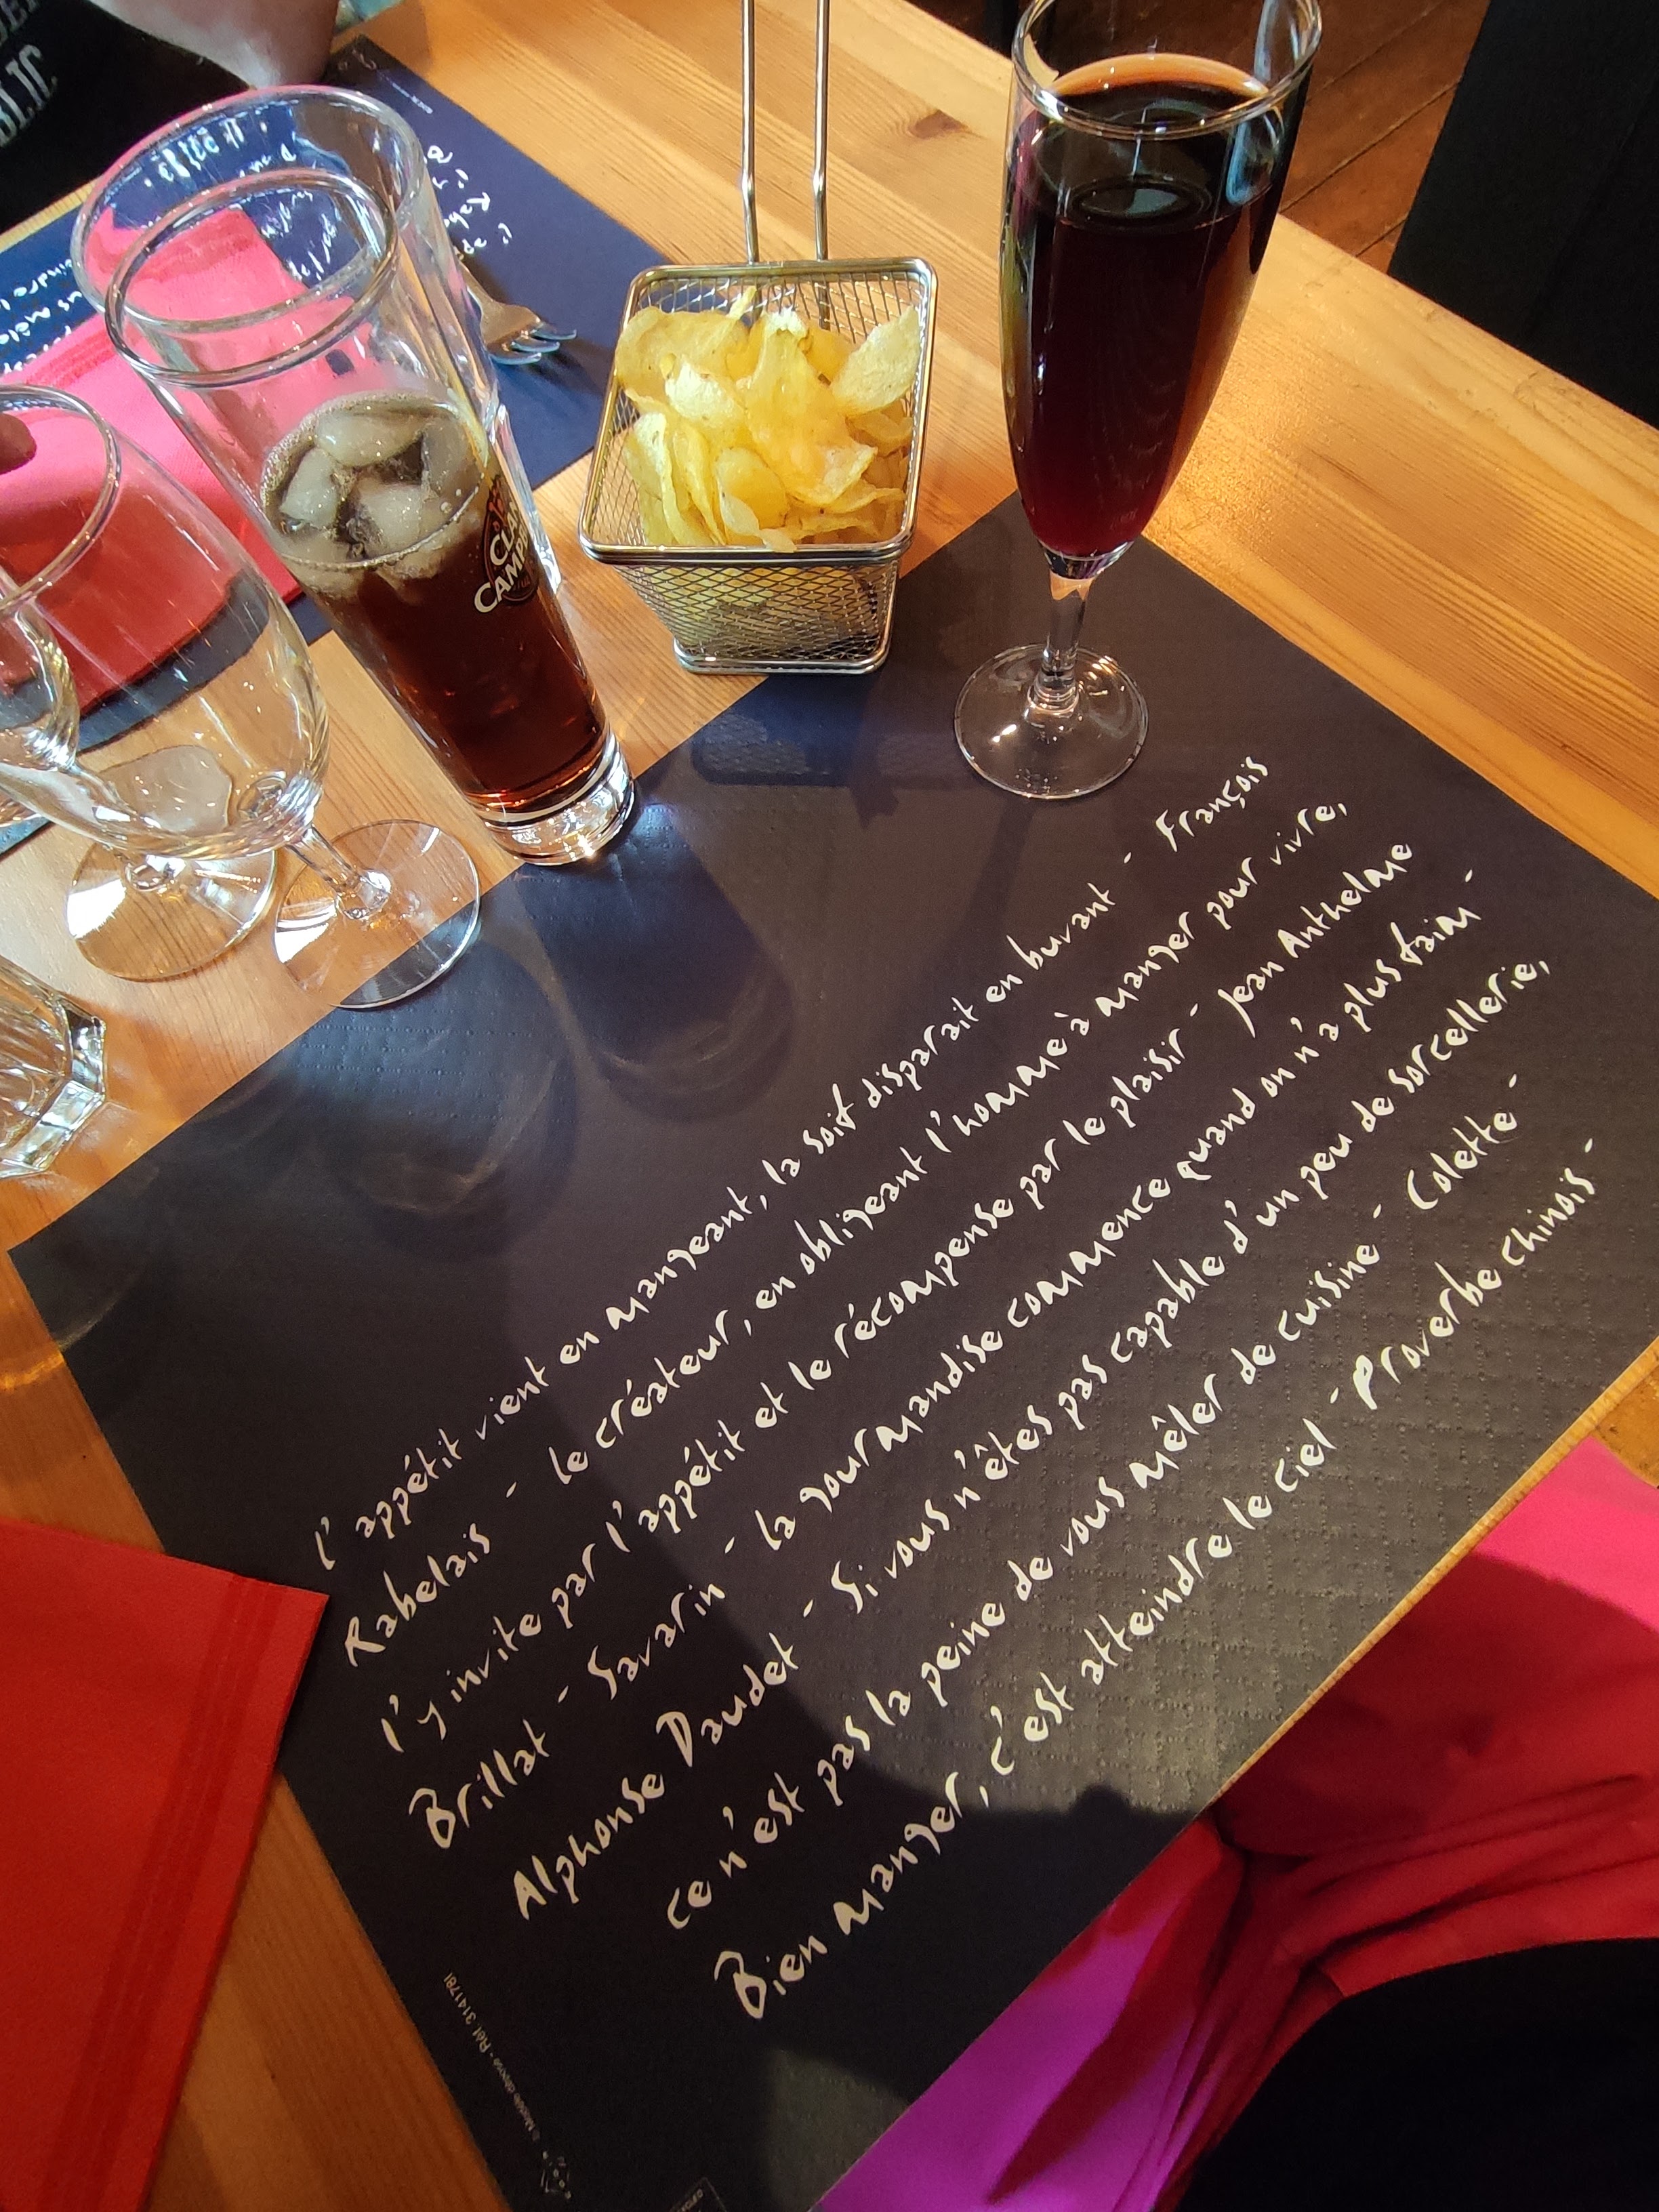 CLAN
CAMPBELL
l'appétit vient en mangeant, la soif disparait en buvant - François
Rabelais - le créateur, en obligeant l'homme à manger pour vivre,
l'y invite par l'appétit et le récompense par le plaisir - Jean Anthelme
Brillat - Savarin - la gourmandise commence quand on n'a plus faim -
Alphonse Daudet - Si vous n'êtes pas capable d'un peu de sorcellerie,
ce n'est pas la peine de vous mêler de cuisine - Colette -
Bien manger, c'est atteindre le ciel - Proverbe chinois -
Modèle déposé - Réf. 314178I